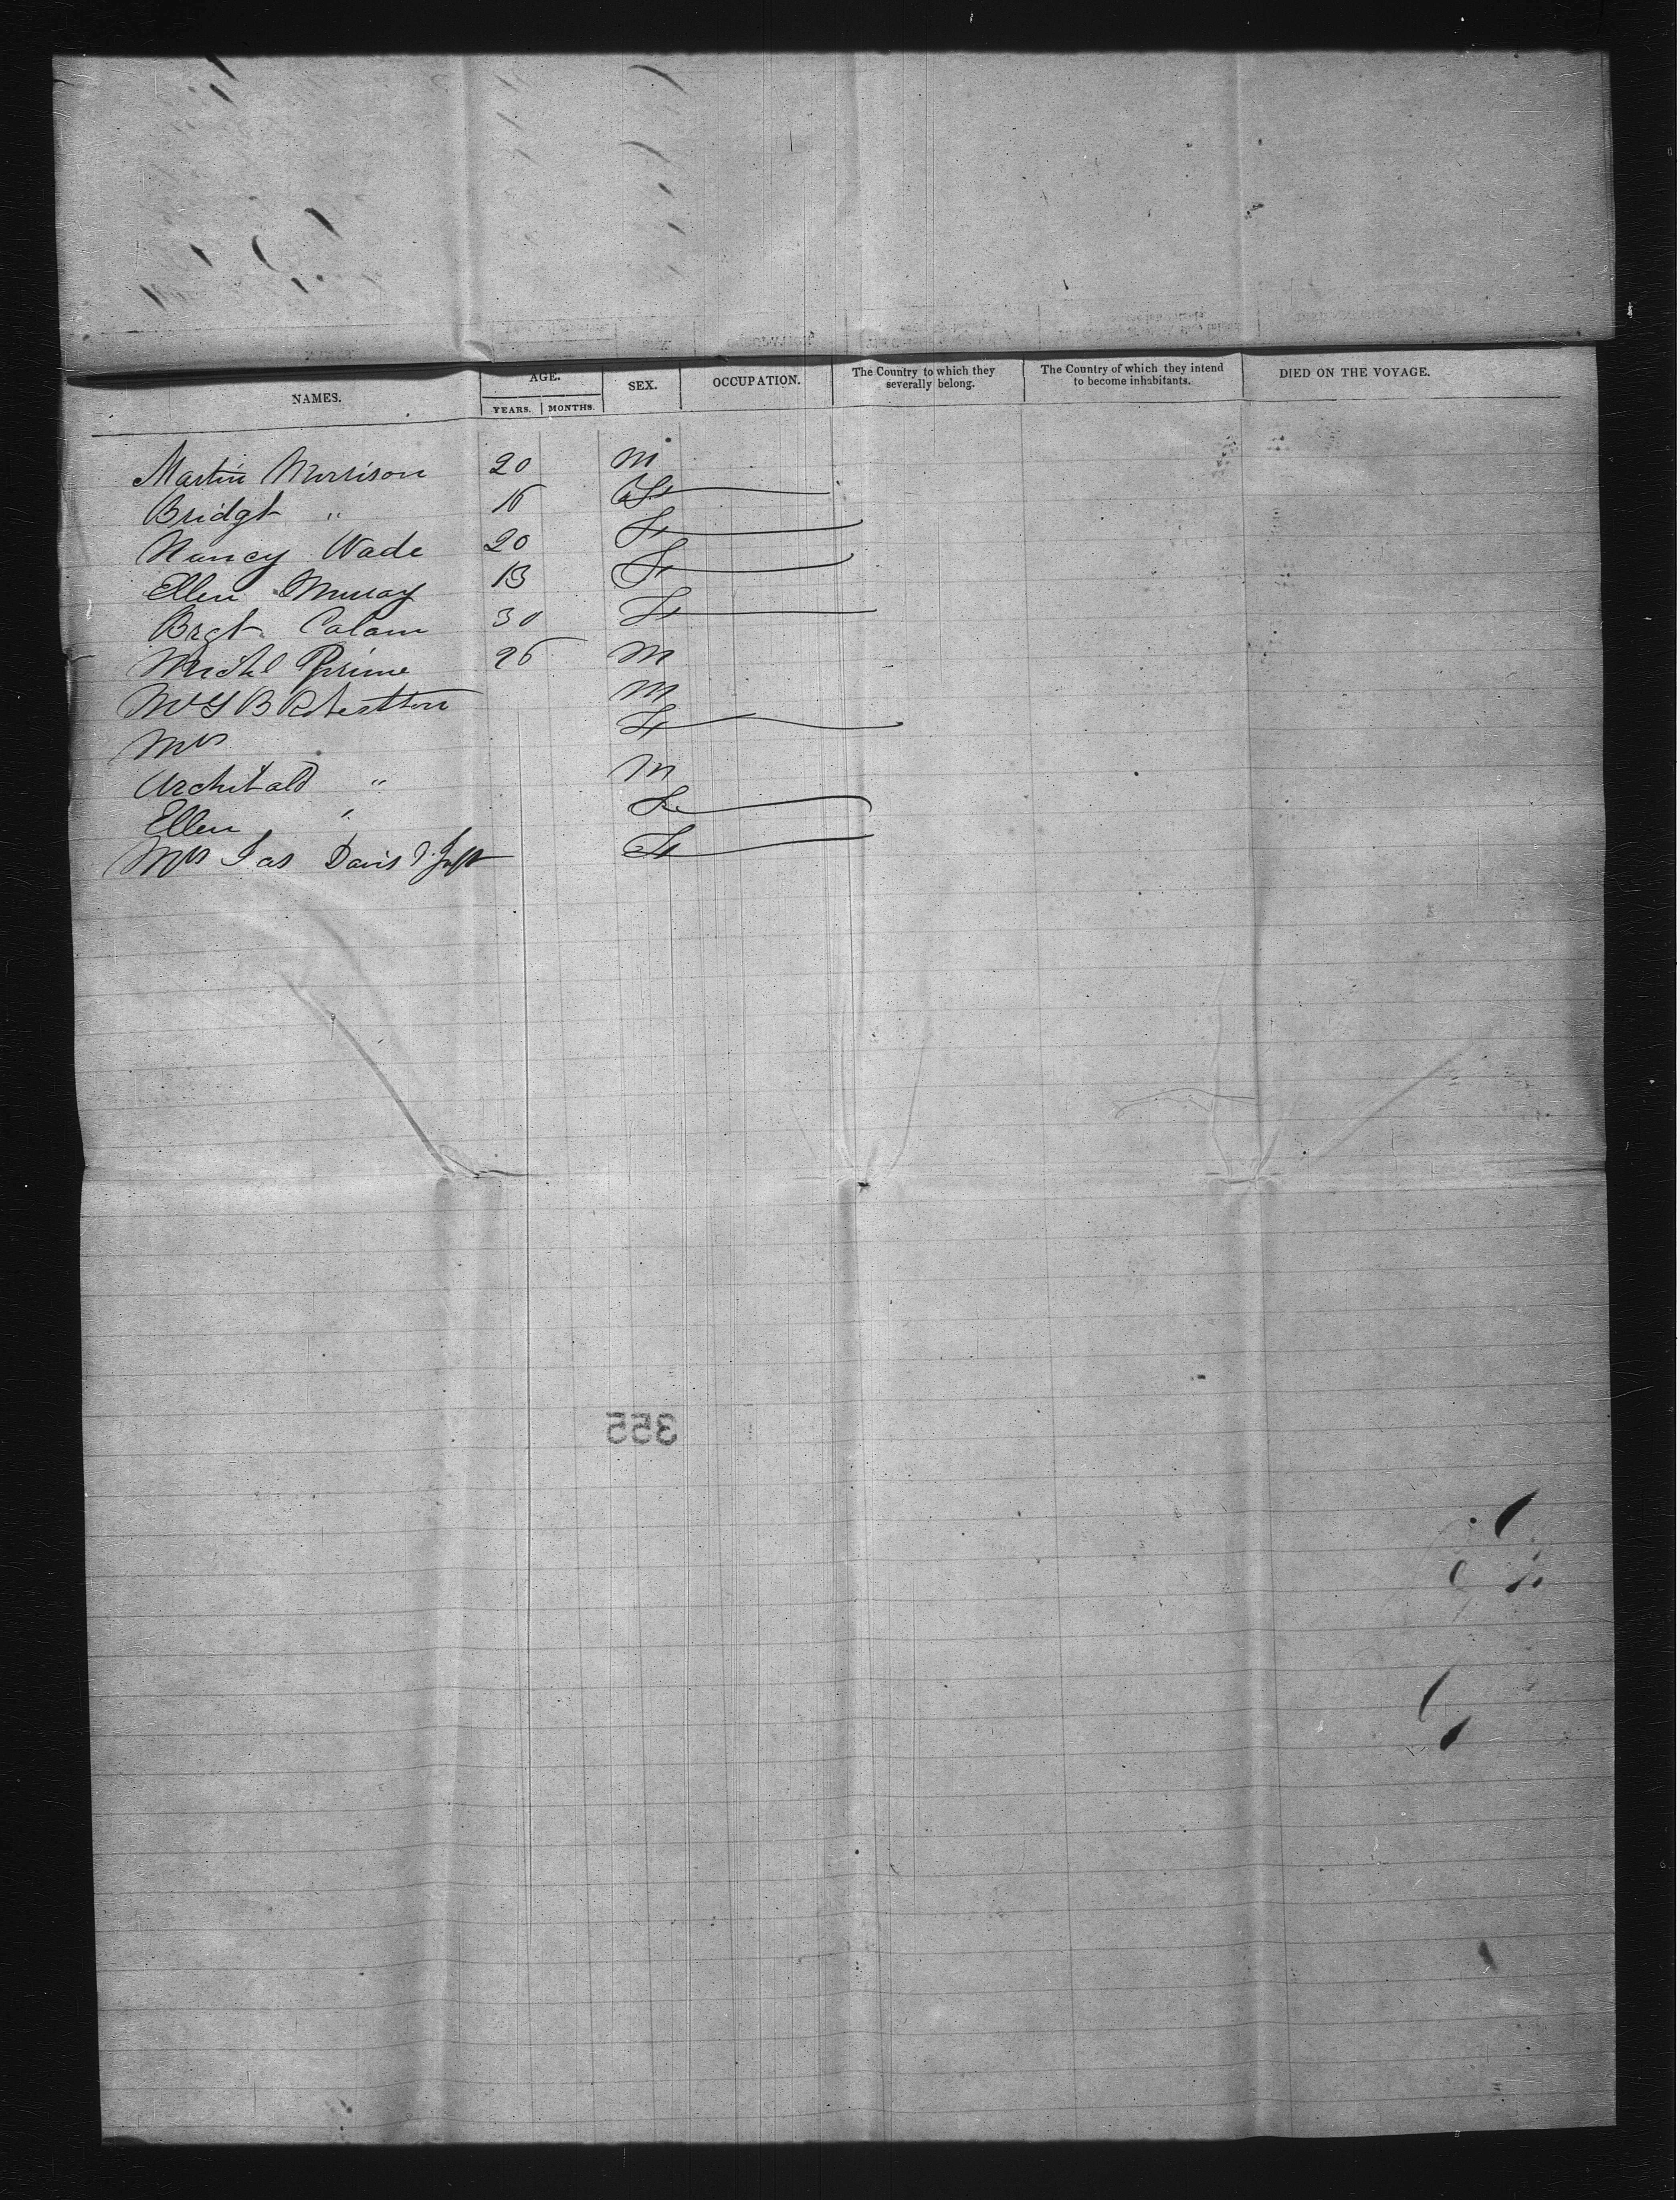 NAMES. AGE. YEARS. MONTHS. SEX. OCCUPATION. The Country to which they severally belong. The Country of which they intend to become inhabitants. DIED ON THE VOYAGE.
Martin Morrison 20 M
Bridgt " 16 F
Nancy Wade 20 F
Ellen Murray 13 F
Brgt 30 F
Michl Prime 26 M
Mr G B Robertson M
Mrs F
Archibald " M
Ellen " F
Mrs Jas Davis & Inft F
355